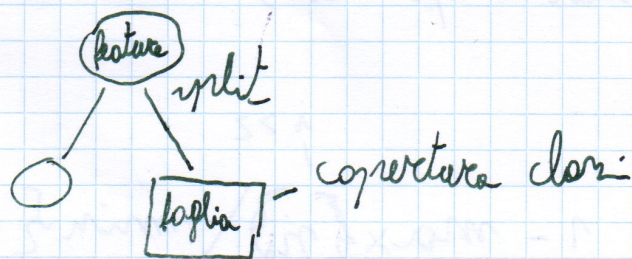 feature
split
foglia - copertura classi